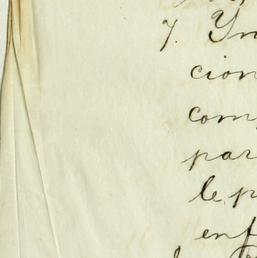 7. Yn
cion
com
par
le p
enf